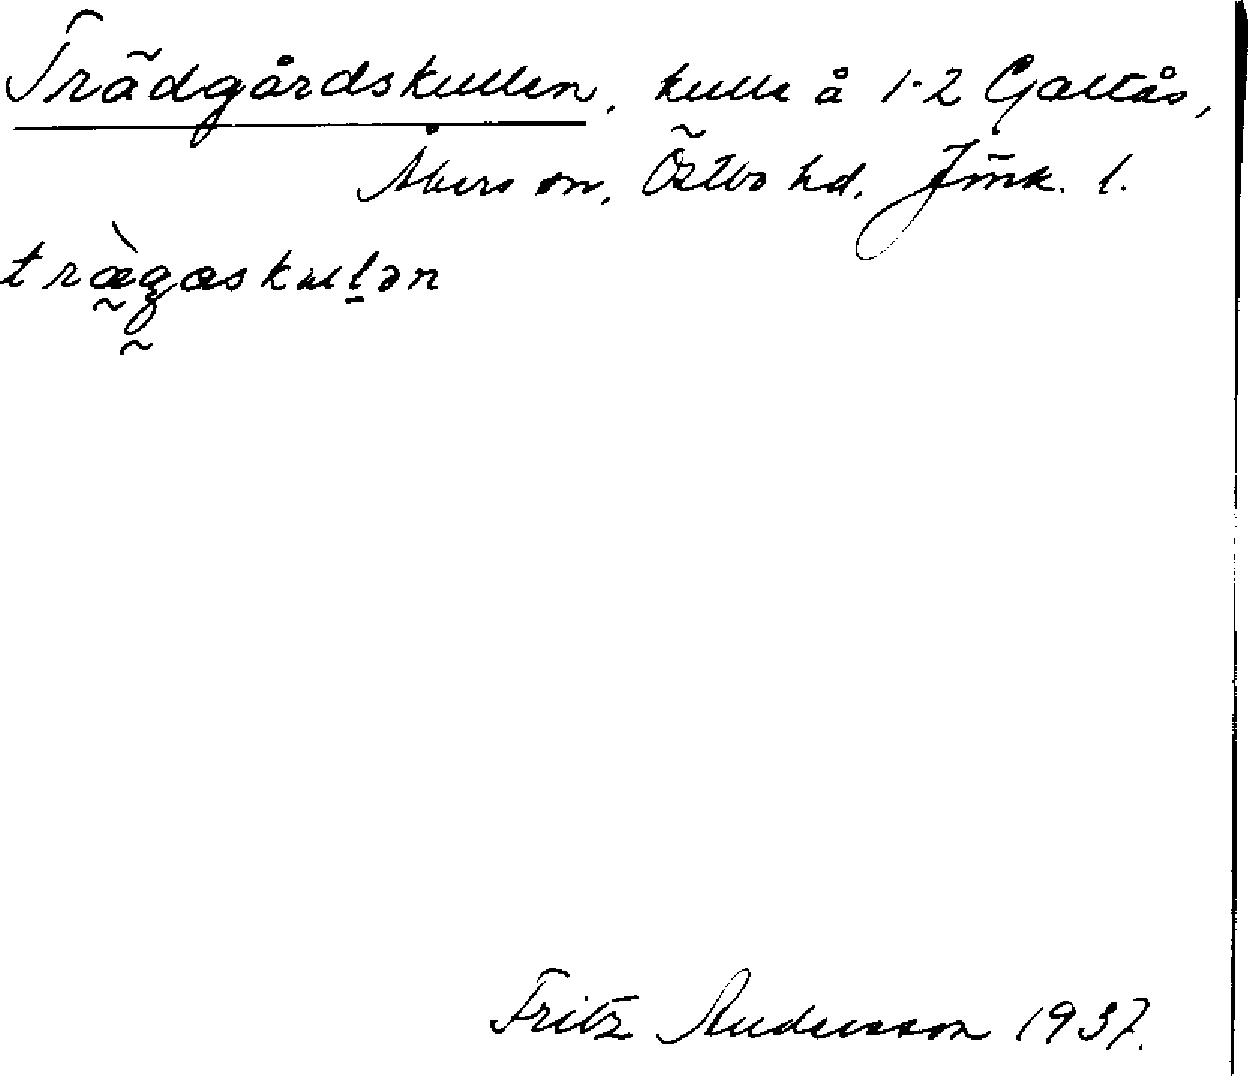 Trädgårdskullen, kulle å 1-2 Galtås,
Åkers sn, Östbo hd. Jmk. l.
træ̀gaskulən
Fritz Andersson 1937.